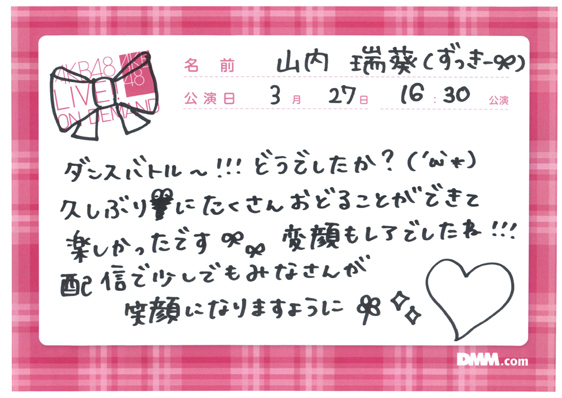 AKB48
LIVE!!
ON DEMAND
AKB
48
名前 山内 瑞葵(ずっきー)
公演日 3月 27日 16:30 公演
ダンスバトル〜!!! どうでしたか?
久しぶりにたくさんおどることができて
楽しかったです 変顔もしてでしたね!!!
配信で少しでもみなさんが
笑顔になりますように
DMM.com